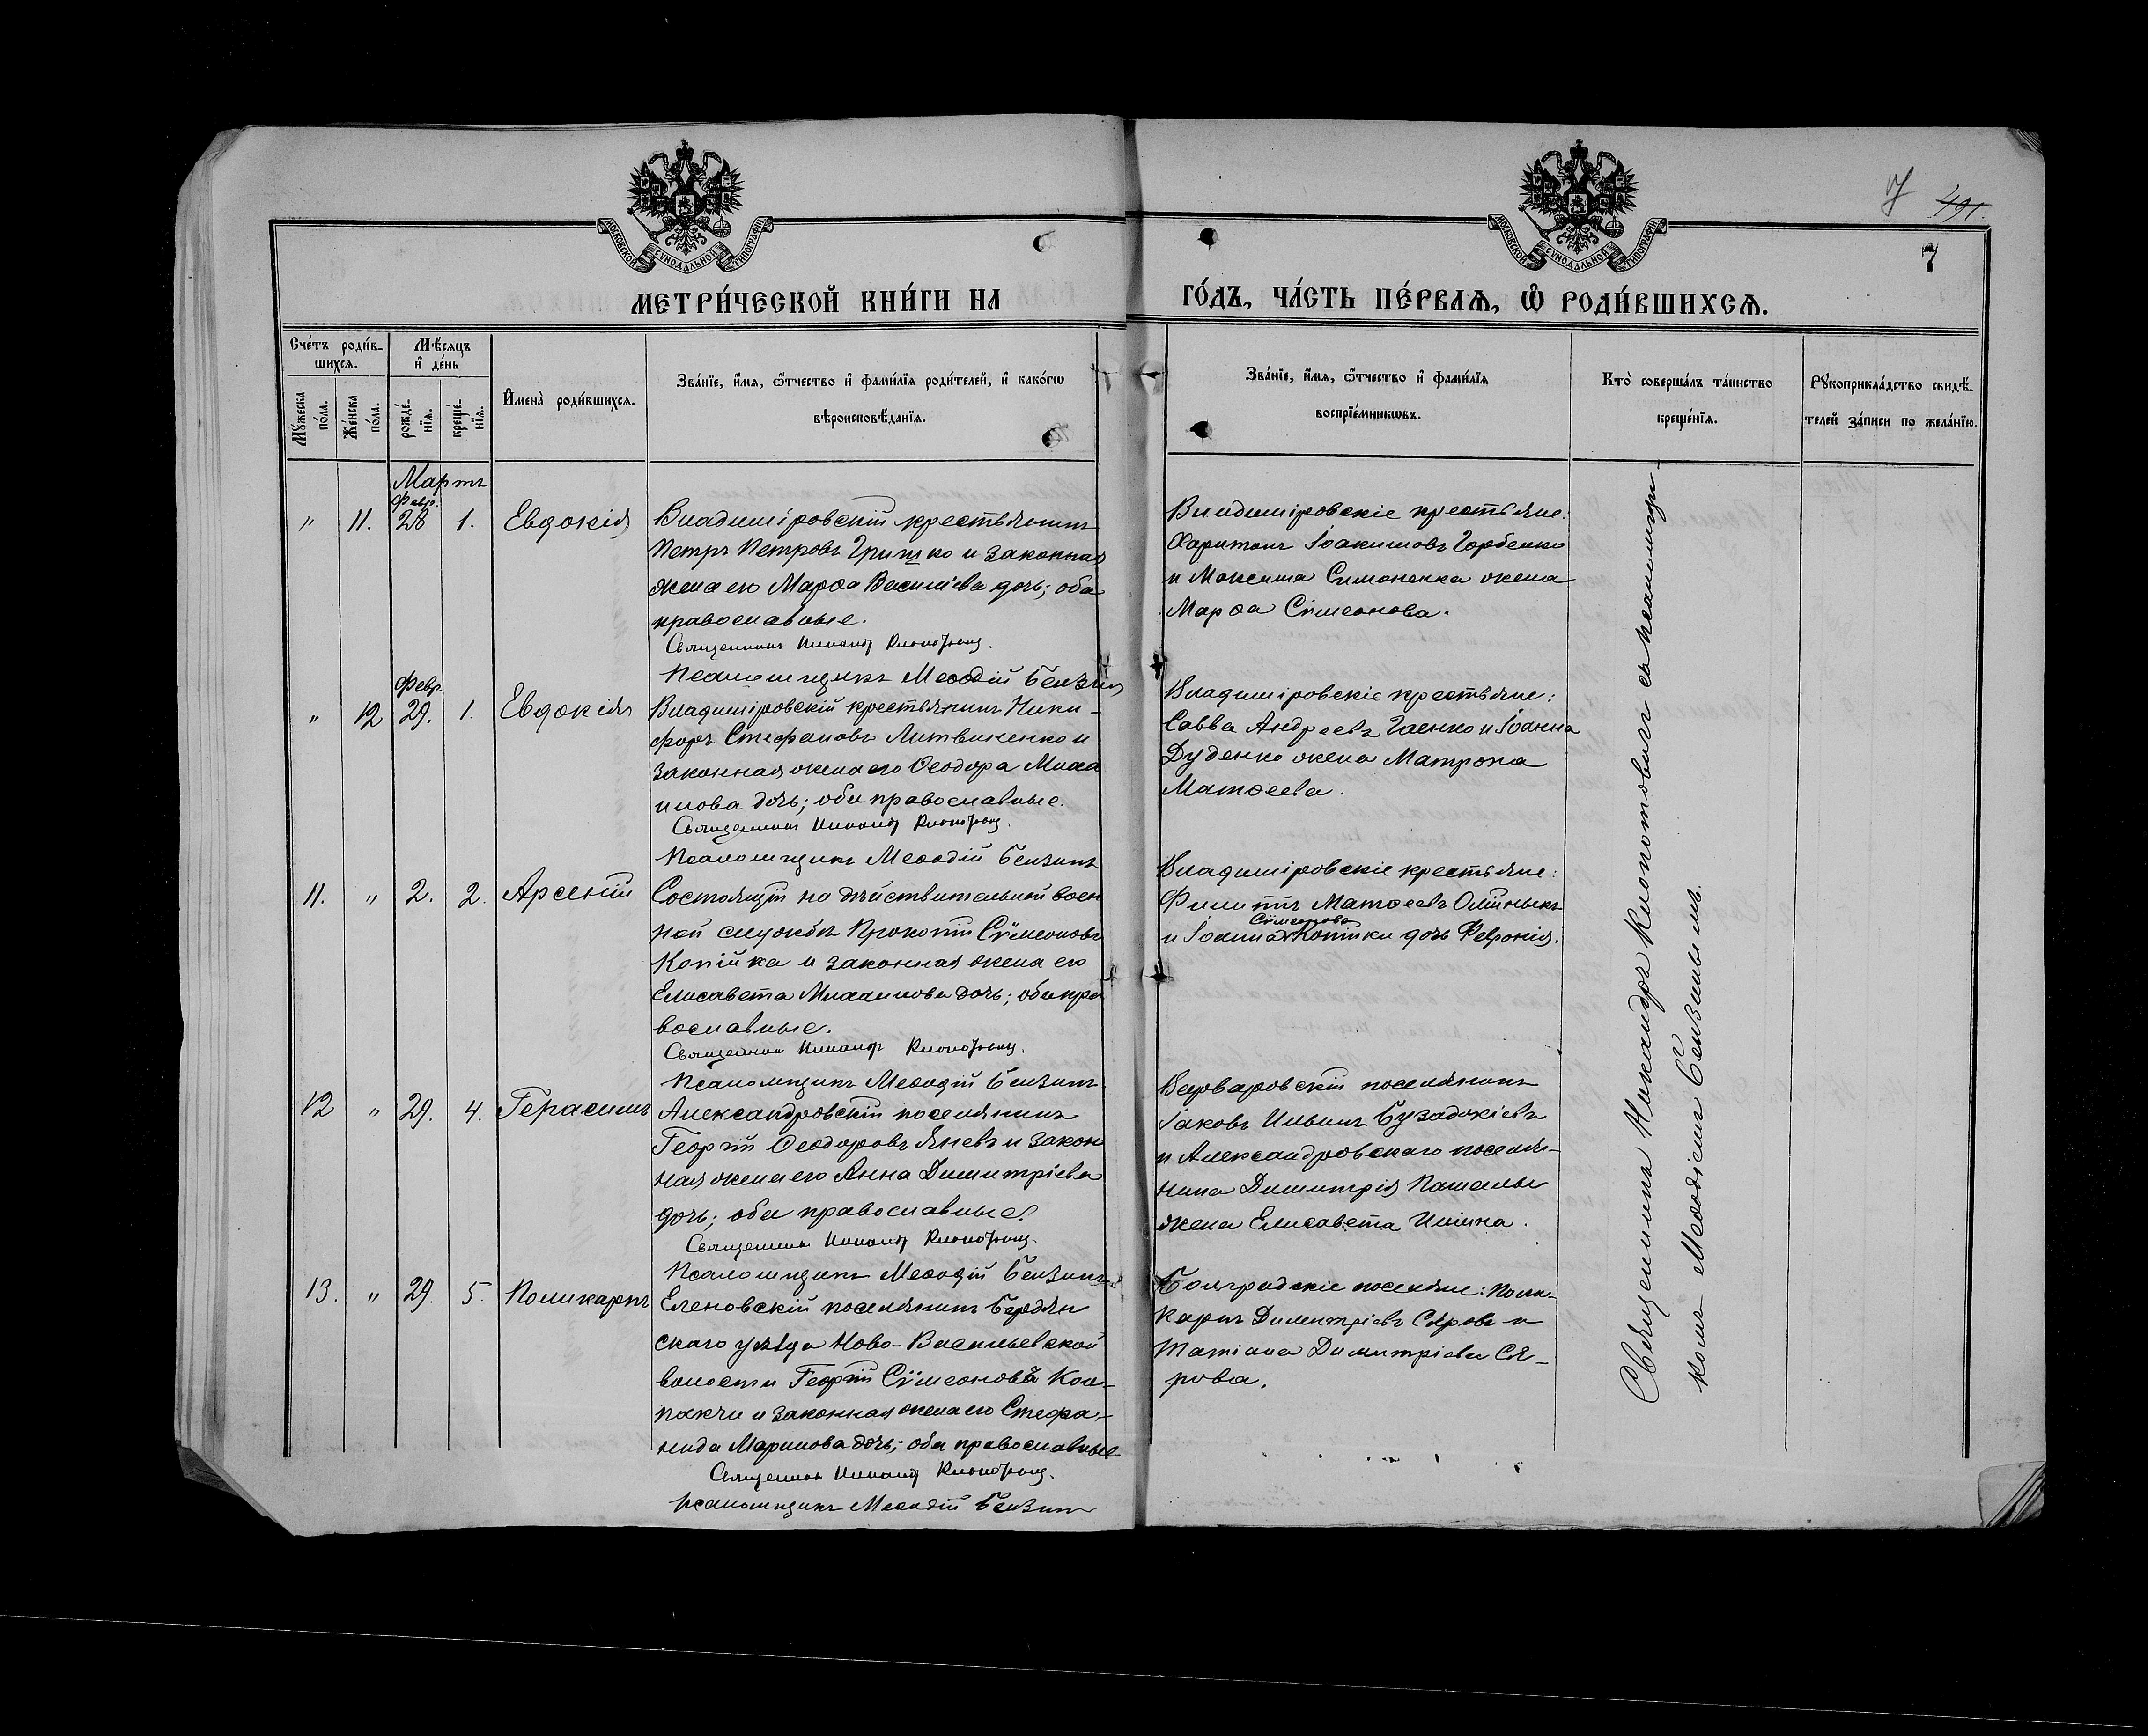 7 491.
7
МОСКОВСКОЙ СУНОДАЛЬНОЙ ТИПОГРАФІИ
МОСКОВСКОЙ СУНОДАЛЬНОЙ ТИПОГРАФІИ
МЕТРИ́ЧЕСКОЙ КНИ́ГИ НА ГО́ДЪ, ЧА́СТЬ ПЕ́РВАЯ, Ѡ РОДИ́ВШИХСЯ.
Сче́тъ роди́в-
шихся.
Мѣ́сяцъ
и҆ де́нь
Мꙋ́жеска
по́ла.
Же́нска
по́ла.
рожде́-
нїя.
креще́-
нїя.
И҆мена̀ роди́вшихся.
Зва́нїе, и҆́мя, ѻ҆́тчество и҆ фами́лїя роди́телей, и҆ како́гѡ
вѣроисповѣ́данїя.
Зва́нїе, и҆́мя, ѻ҆́тчество и҆ фами́лїя
воспрїе́мникѡвъ.
Кто̀ соверша́лъ та́инство
креще́нїя.
Рꙋкоприкла́дство свидѣ́-
телей за́писи по жела́нїю.
Мартъ
Февр.
" 11. 28 1. Евдокія
Владиміровскій крестьянинъ
Петръ Петровъ Гришко и законная
жена его Марѳа Василіева дочь; оба
православные.
Священникъ Никандръ Клопотовичъ.
Псаломщикъ Меѳодій Бензинъ
Владиміровскіе крестьяне:
Харитонъ Іоакимовъ Горбенко
и Максима Симоненка жена
Марѳа Сѵмеонова.
Февр.
" 12 29. 1. Евдокія
Владиміровскій крестьянинъ Ники-
форъ Стефановъ Литвиненко и
законная жена его Ѳеодора Миха
илова дочь; оба православные.
Священникъ Никандръ Клопотовичъ.
Псаломщикъ Меѳодій Бензинъ
Владиміровскіе крестьяне:
Савва Андреевъ Гаенко и Іоанна
Дуденко жена Матрона
Матѳеева.
11. " 2. 2. Арсеній
Состоящій на дѣйствительной воен
ной службѣ Прокопій Сѵмеоновъ
Копійка и законная жена его
Елисавета Михаилова дочь; оба пра
вославные.
Священникъ Никандръ Клопотовичъ.
Псаломщикъ Меѳодій Бензинъ.
Владиміровскіе крестьяне:
Филиппъ Матѳеевъ Олійныкъ
Сѵмеонова
и Іоанна Копійки дочь Февронія.
12 " 29. 4. Герасимъ
Александровскій поселянинъ
Георгій Ѳеодоровъ Яневъ и закон
ная жена его Анна Димитріева
дочь; оба православные.
Священникъ Никандръ Клопотовичъ.
Псаломщикъ Меѳодій Бензинъ
Варваровскій поселянинъ
Іаковъ Ильинъ Бузаджіевъ
и Александровскаго поселя-
нина Димитрія Пашалы
жена Елисавета Ильина.
13. " 29. 5. Поликарпъ
Еленовскій поселянинъ Бердян
скаго уѣзда Ново-Васильевской
волости Георгій Сѵмеоновъ Кол-
пакчи и законная жена его Стефа-
нида Маринова дочь; оба православные
Священникъ Никандръ Клопотовичъ.
Псаломщикъ Меѳодій Бензинъ
Болградскіе поселяне: Поли-
карпъ Димитріевъ Сяровъ и
Татіана Димитріева Ся-
рова.
Священника Никандръ Клопотовичъ съ псаломщи-
комъ Меѳодіемъ Бензинымъ.